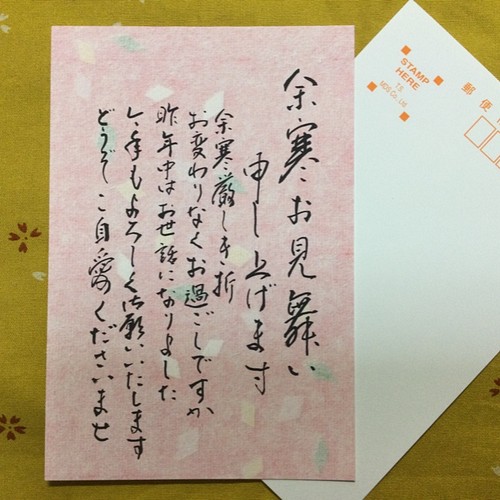 余寒お見舞い
申し上げます
余寒厳しき折
お変わりなくお過ごしですか
昨年中はお世話になりました
今年もよろしく御願いいたします
どうぞご自愛くださいませ
STAMP
HERE
T.S
MDS Co., Ltd
郵便